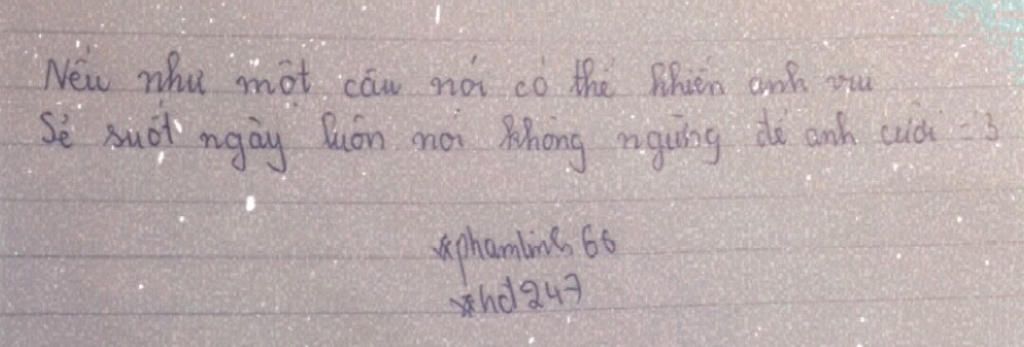 Nếu như một câu nói có thể khiến anh vui
Sẽ suốt ngày luôn nói không ngừng để anh cười =3
*phamlinh 66
*hd247